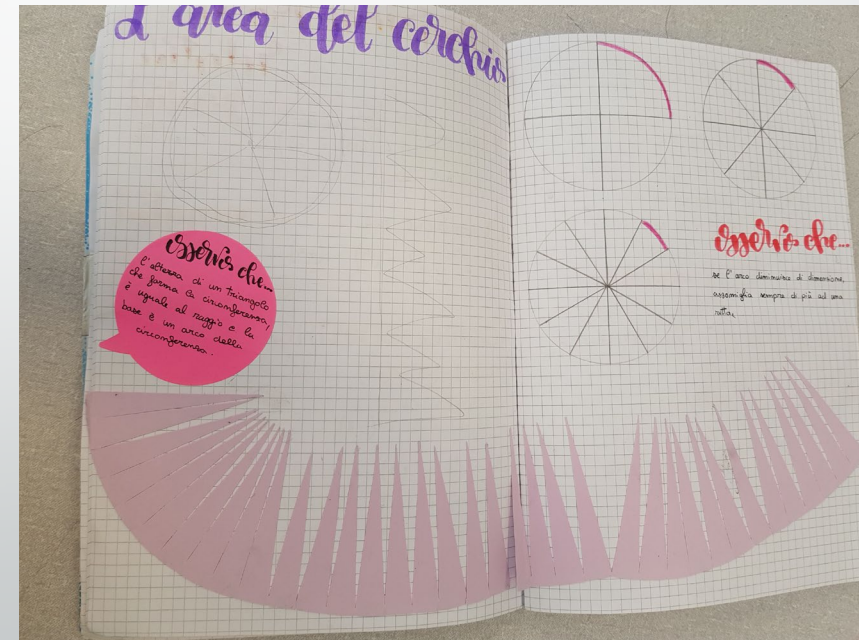 L'area del cerchio
osservo che...
l'altezza di un triangolo
che forma la circonferenza,
è uguale al raggio e la
base è un arco della
circonferenza.
osservo che...
se l'arco diminuisce di dimensione,
assomiglia sempre di più ad una
retta.